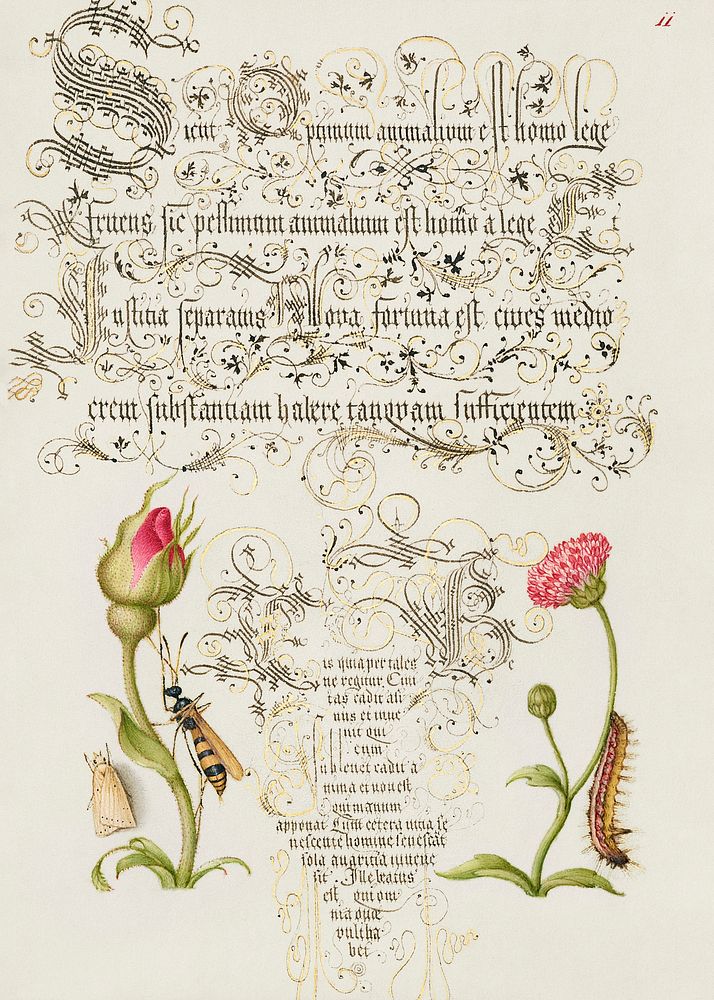 ii
Sicut Optimum animalium est homo lege
fruens, sic pessimum animalium est homo a lege Et
Iustitia separatus Nova fortuna est, cives medio
crem substantiam habere tanquam sufficientem
is quia per tales
ne regitur Civi
tas cadit asi
nus et inve
nit qui
eum
sublevet cadit a
nima et non est
qui manum
apponat Cum cetera vitia se
nescente homine senescāt
sola avaritia iuvene
sit. Ille beatus
est, qui om
nia quae
vult ha
bet